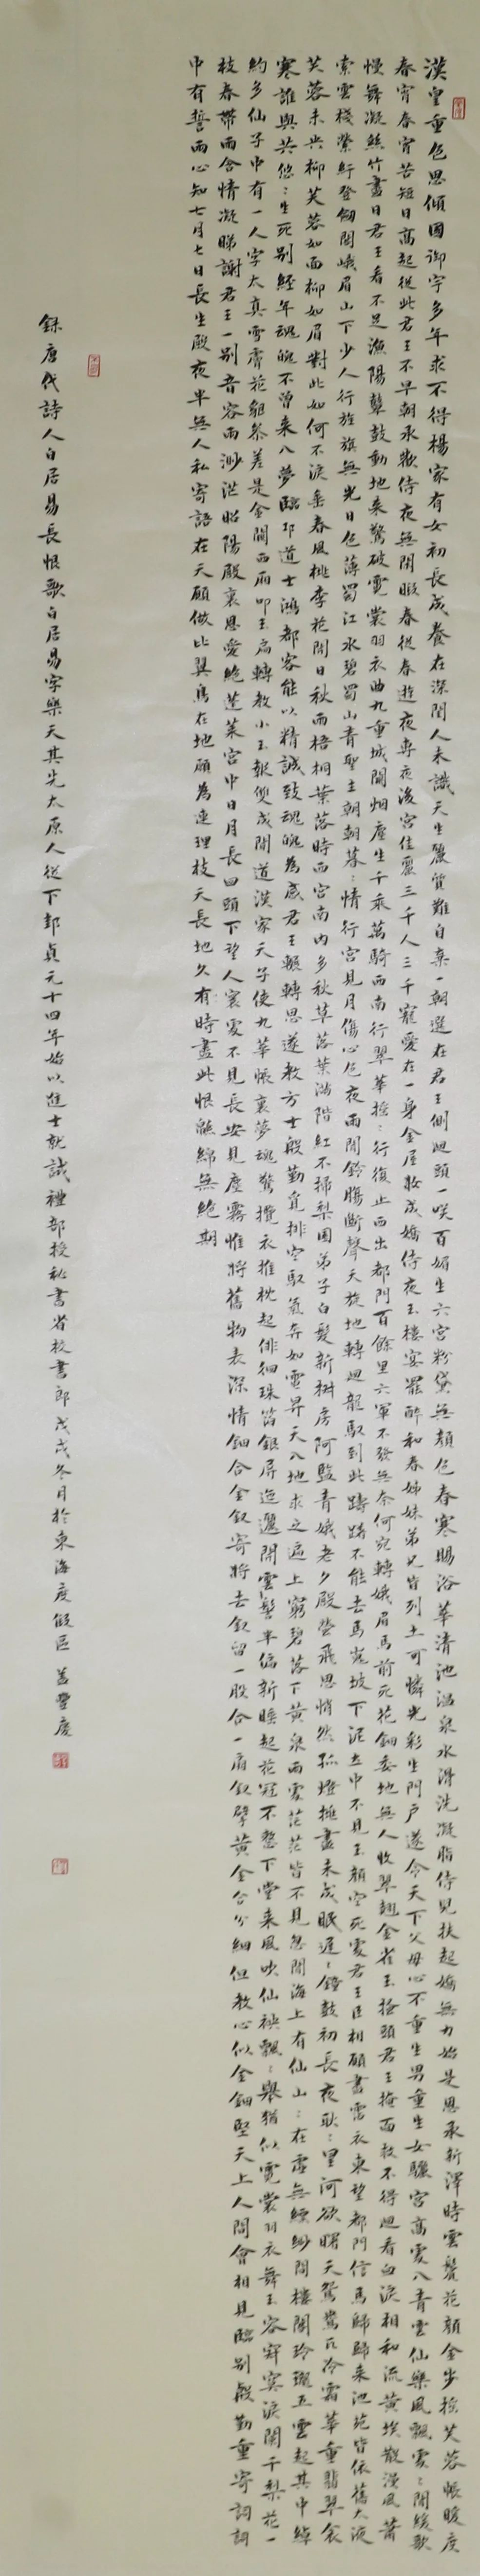 漢皇重色思傾國御宇多年求不得楊家有女初長成養在深閨人未識天生麗質難自棄一朝選在君王側迴頭一咲百媚生六宮粉黛無顏色春寒賜浴華清池温泉水滑洗凝脂侍兒扶起嬌無力始是恩承新澤時雲鬢花顏金步摇芙蓉帳暖度
春宵春宵苦短日高起從此君王不早朝承歡侍夜無閒暇春從春遊夜專夜後宮佳麗三千人三千寵愛在一身金屋妝成嬌侍夜玉樓宴罷醉和春姊妹弟兄皆列土可憐光彩生門戶遂令天下父母心不重生男重生女驪宮高處入青雲仙樂風飄處〻聞緩歌
慢舞凝絲竹盡日君王看不足漁陽鼙鼓動地来驚破霓裳羽衣曲九重城闕烟塵生千乘萬騎西南行翠華摇〻行復止西出都門百餘里六軍不發無奈何宛轉娥眉馬前死花鈿委地無人收翠翹金雀玉搔頭君王掩面救不得迴看血淚相和流黄埃散漫風蕭
索雲棧縈紆登劒閣峨眉山下少人行旌旗無光日色薄蜀江水碧蜀山青聖主朝朝暮〻情行宮見月傷心色夜雨聞鈴腸斷聲天旋地轉迴龍馭到此躊躇不能去馬嵬坡下泥土中不見玉顏空死處君王臣相顧盡霑衣東望都門信馬歸歸来池苑皆依舊太液
芙蓉未央柳芙蓉如面柳如眉對此如何不淚垂春風桃李花開日秋雨梧桐葉落時西宮南内多秋草落葉滿階紅不掃梨園弟子白髮新椒房阿監青娥老夕殿螢飛思悄然孤燈挑盡未成眠遲〻鐘鼓初長夜耿〻星河欲曙天鴛鴦瓦冷霜華重翡翠衾
寒誰與共悠〻生死别經年魂魄不曾来入夢臨邛道士鴻都客能以精誠致魂魄為感君王輾轉思遂教方士殷勤覓排空馭氣奔如電昇天入地求之遍上窮碧落下黄泉兩處茫茫皆不見忽聞海上有仙山〻在虚無縹緲間樓閣玲瓏五雲起其中綽
約多仙子中有一人字太真雪膚花貌參差是金闕西廂叩玉扃轉教小玉報雙成聞道漢家天子使九華帳裏夢魂驚攬衣推枕起徘徊珠箔銀屏迤邐開雲鬢半偏新睡起花冠不整下堂来風吹仙袂飄〻舉猶似霓裳羽衣舞玉容寂寞淚闌干梨花一
枝春帶雨含情凝睇謝君王一别音容兩渺茫昭陽殿裏恩愛絶蓬萊宮中日月長回頭下望人寰處不見長安見塵霧惟將舊物表深情鈿合金釵寄將去釵留一股合一扇釵擘黄金合分鈿但教心似金鈿堅天上人間會相見臨别殷勤重寄詞詞
中有誓兩心知七月七日長生殿夜半無人私寄語在天願做比翼鳥在地願為連理枝天長地久有時盡此恨綿綿無絶期
録唐代詩人白居易長恨歌白居易字樂天其先太原人從下邽貞元十四年始以進士就試禮部授秘書省校書郎戊戌冬月於東海度假區